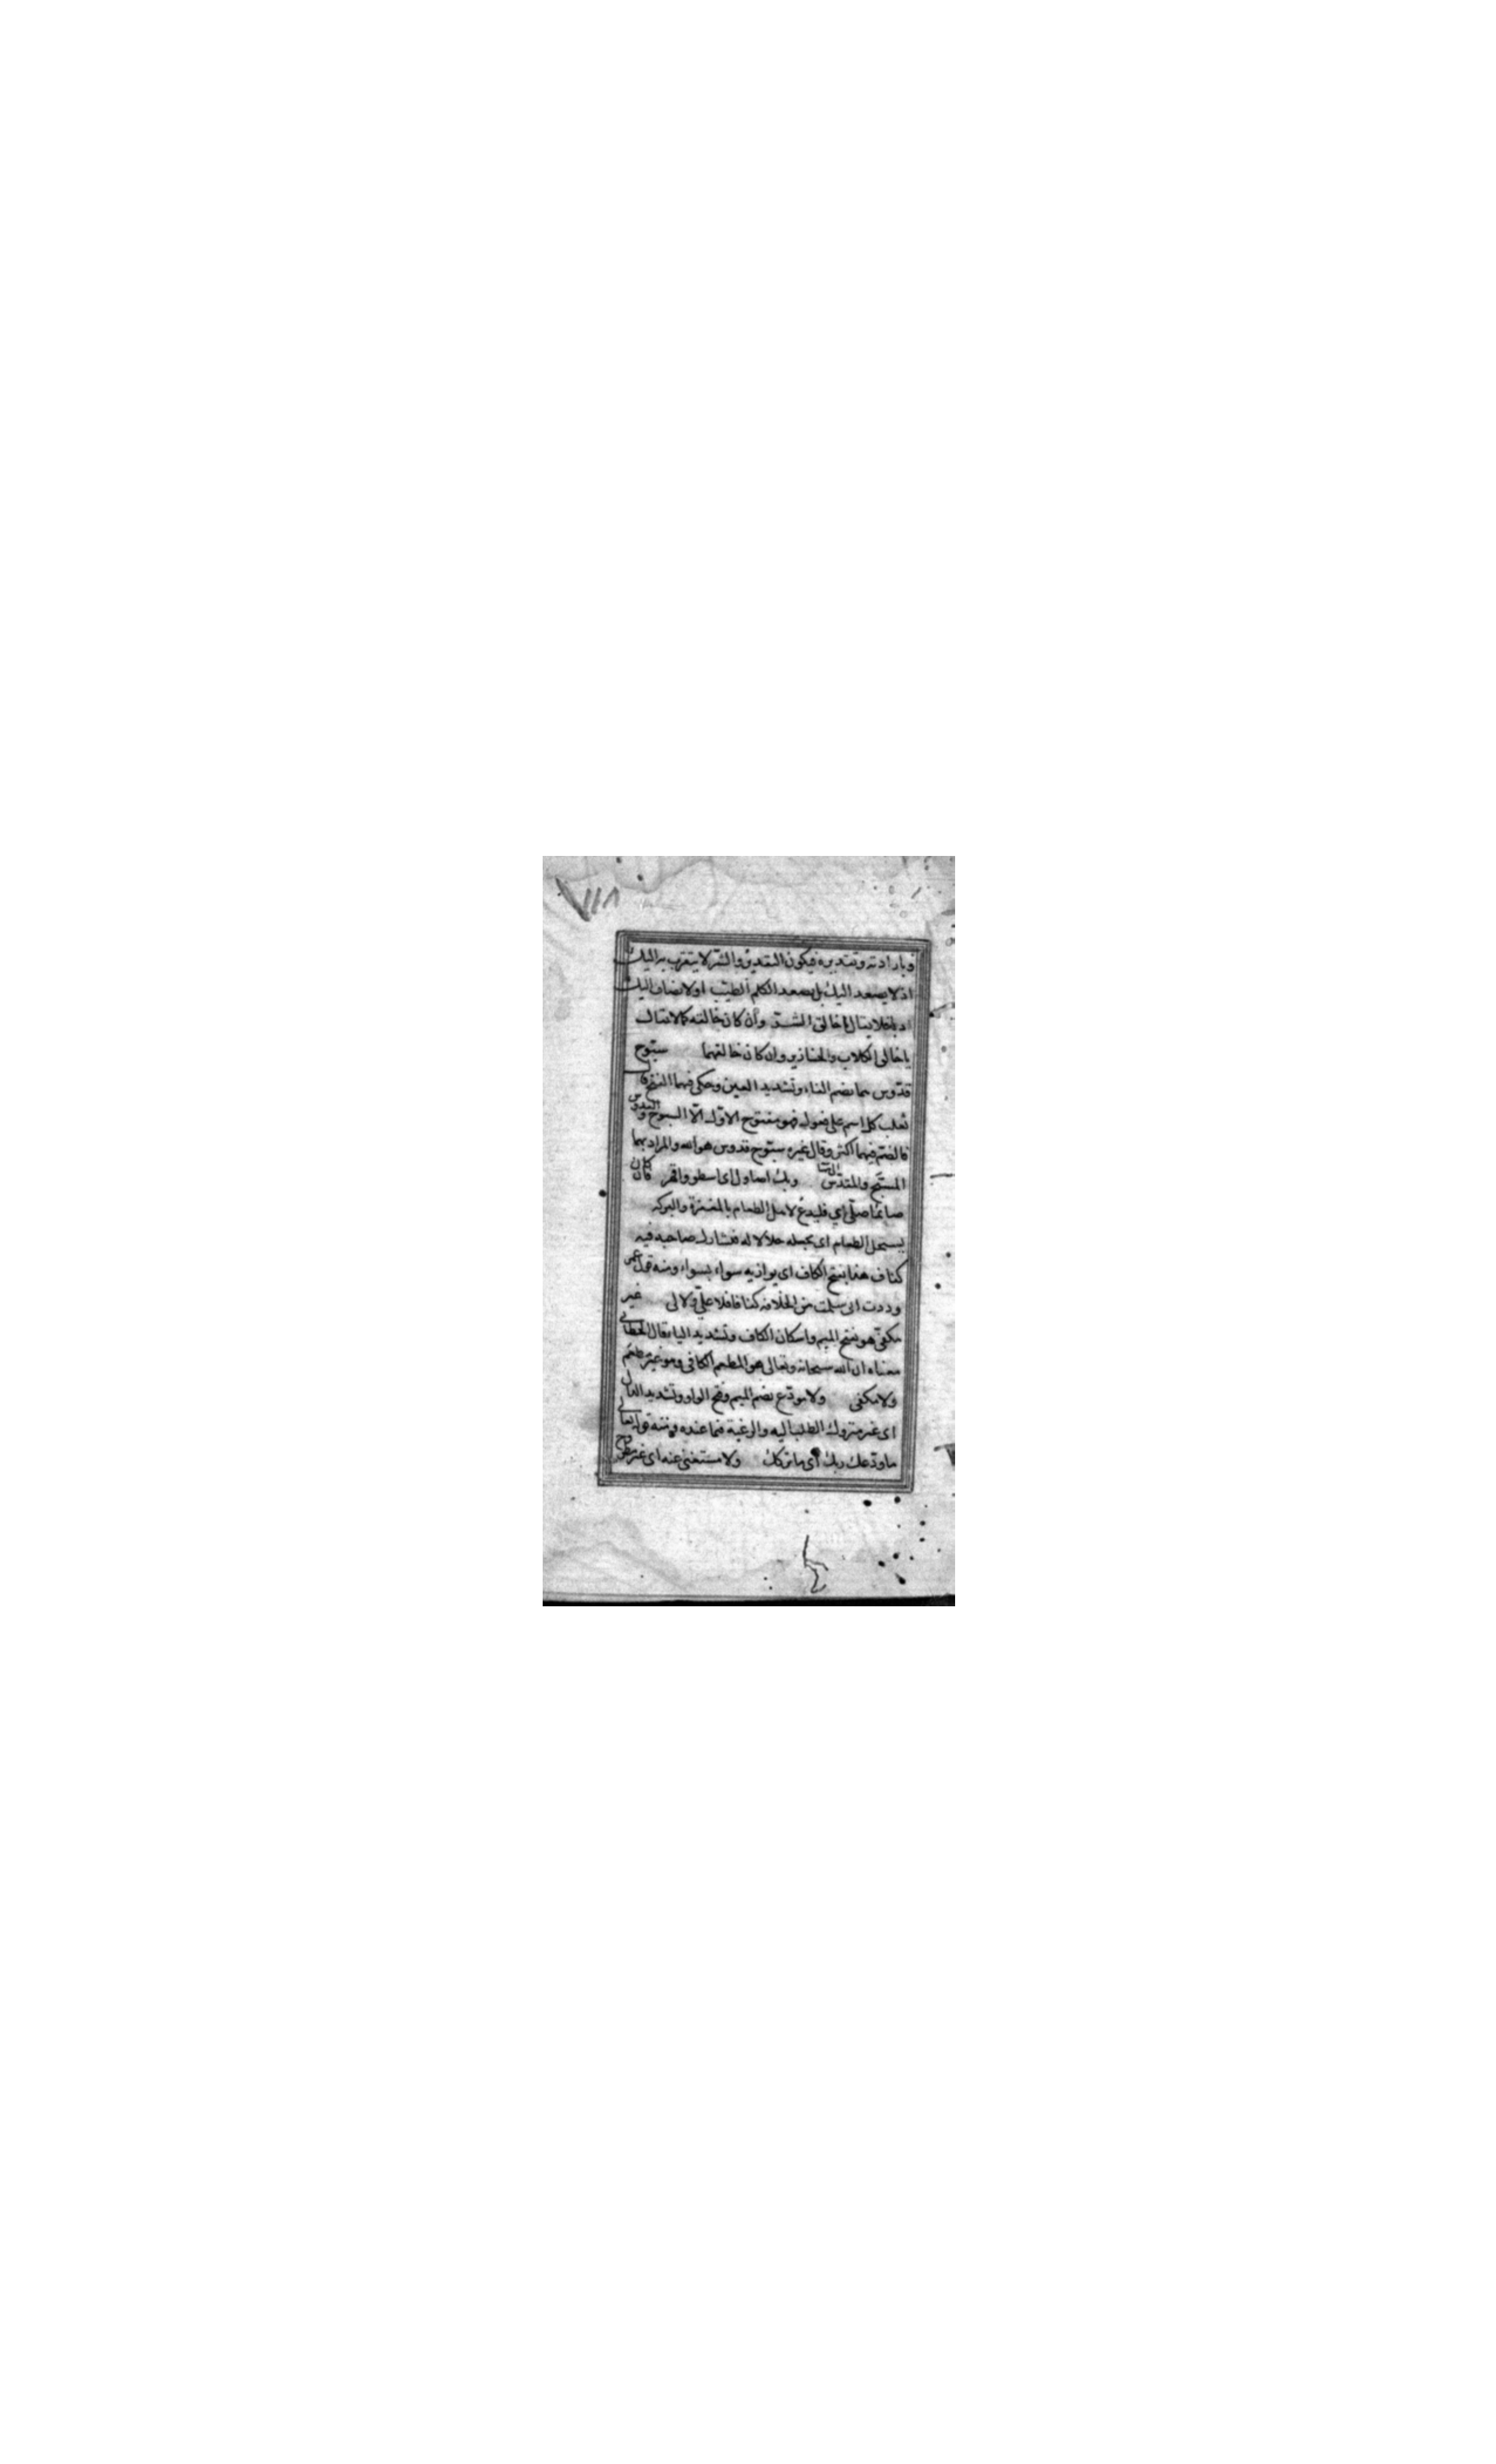 وبارادته وتقديره فيكون التقدير والشر لا يتقرب به اليك
اذ لا يصعد اليك بل يصعد الكلم الطيب او لا يضاف اليك
ادبا فلا يقال يا خالق الشر وان كان خالقه كما لا يقال
يا خالق الكلاب والخنازير وان كان خالقهما سبّوح
قدّوس هما بضم الفاء وتشديد العين وحكى فيهما الفتح قال
ثعلب كل اسم على فعول فهو مفتوح الاوّل الّا السبوح والقدوس
فالضم فيهما اكثر وقال غيره سبّوح قدوس هو الله والمراد بهما
المسبّح والمقدّس وبك اصاول اى اسطو واقهر كان
صائما صلّى اي فليدع لاهل الطعام بالمغفرة والبركة
يستحل الطعام اى يجعله حلالا له فتشارك صاحبه فيه
كفاف هذا بفتح الكاف اى يوازيه سواء بسواء ومنه قول عمر
وددت انى سلمت من الخلافة كفافا لا علىّ ولا لى غير
مكفىّ هو بفتح الميم واسكان الكاف وتشديد الياء قال الخطابي
معناه ان الله سبحانه وتعالى هو المطعم الكافى وهو غير مطعم
ولا مكفى ولا مودّع بضم الميم وفتح الواو وتشديد الدال
اى غير متروك الطلب اليه والرغبة فيما عنده ومنه قوله تعالى
ما ودّعك ربك اى ما تركك ولا مستغنى عنه اى غير مطروح